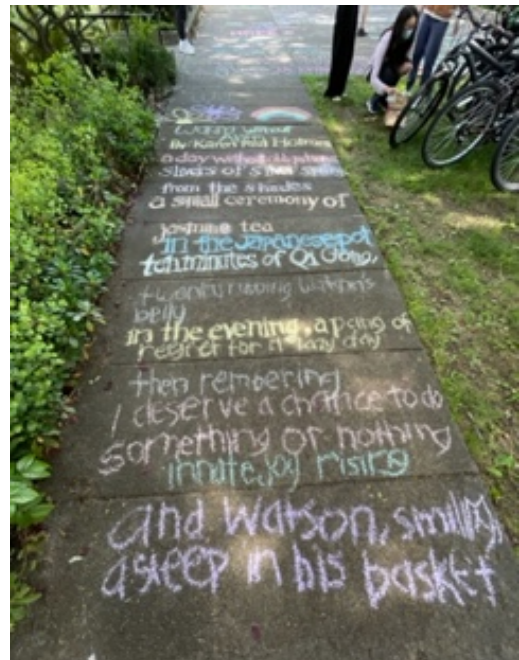 By Karen Paul Holmes
a day without
slants of
from the shades
a small ceremony of
jasmine tea
in the Japanese pot
ten minutes of Qi Gong,
twenty rubbing Watson's
belly
in the evening, a pang of
regret for a lazy day
then rembering
I deserve a chance to do
something or nothing
innate joy rising
and Watson, smiling,
asleep in his basket